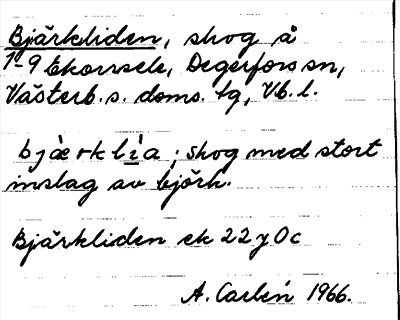 Bjärkliden, skog å
1-9 Ekorrsele, Degerfors sn,
Västerb. s. doms. tg, Vb. l.
bjæ̀rklìa; skog med stort
inslag av björk.
Bjärkliden ek 22 y 0c
A. Carlén 1966.